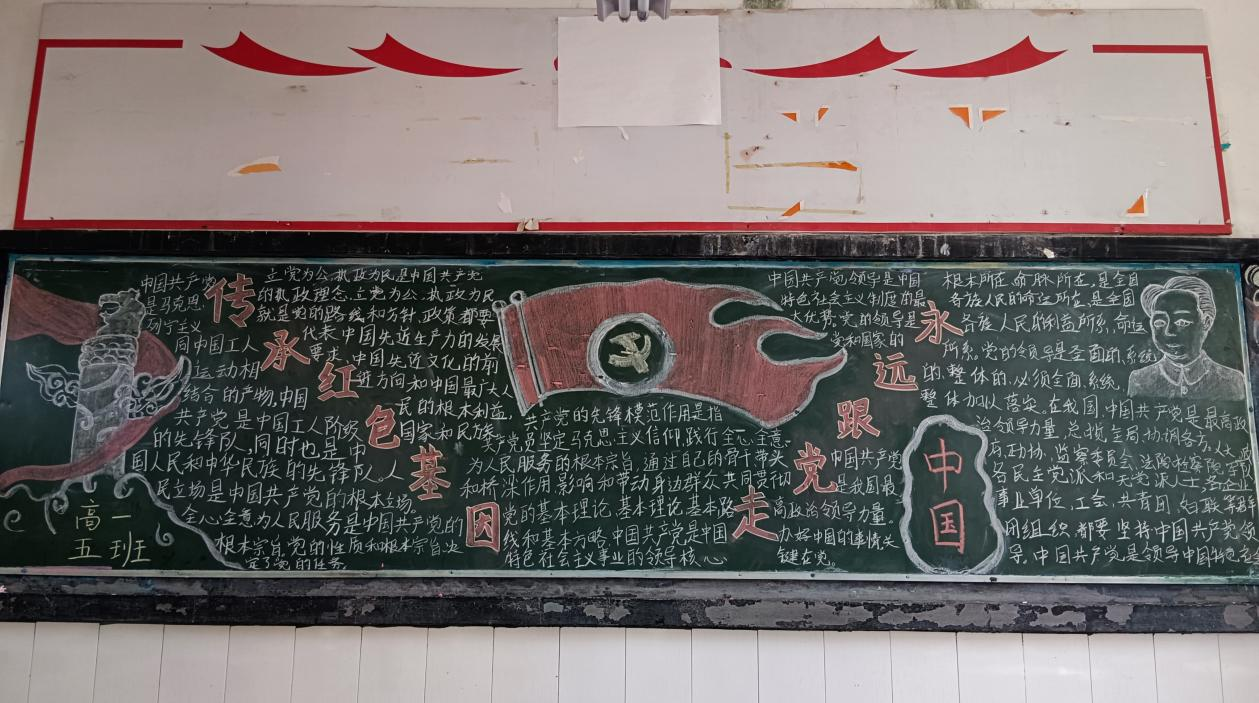 传承红色基因
永远跟党走
中国共产党
是马克思
列宁主义
同中国工人
运动相
结合的产物,中国
共产党是中国工人阶级
的先锋队,同时也是中
国人民和中华民族的先锋队。人
民立场是中国共产党的根本立场。
全心全意为人民服务是中国共产党的
根本宗旨,党的性质和根本宗旨决
定了党的任务
立党为公,执政为民是中国共产党
的执政理念,立党为公,执政为民
就是党的路线和方针,政策都要
代表中国先进生产力的发展
要求,中国先进文化的前
进方向和中国最广大人
民的根本利益,
国家和民族
共产党的先锋模范作用是指
共产党员坚定马克思主义信仰,践行全心全意
为人民服务的根本宗旨,通过自己的骨干带头
和桥梁作用影响和带动身边群众共同贯彻
党的基本理论,基本理论基本路
线和基本方略,中国共产党是中国
特色社会主义事业的领导核心
中国共产党领导是中国
特色社会主义制度的最
大优势。党的领导是
党和国家的
根本所在,命脉所在,是全国
各族人民的命运所在,是全国
各族人民的利益所系,命运
所系。党的领导是全面的,系统
的,整体的,必须全面,系统,
整体加以落实。在我国,中国共产党是最高政
治领导力量,总揽全局,协调各方,人大,
政协,监察委员会,法院
各民主党派和无党派人士,各企业
事业单位,工会,共青团,妇联等群
团组织,都要坚持中国共产党领
导。中国共产党是领导中国特色
中国共产党
是我国最
高政治领导力量。
办好中国的事情关
键在党。
中国
高一
五班